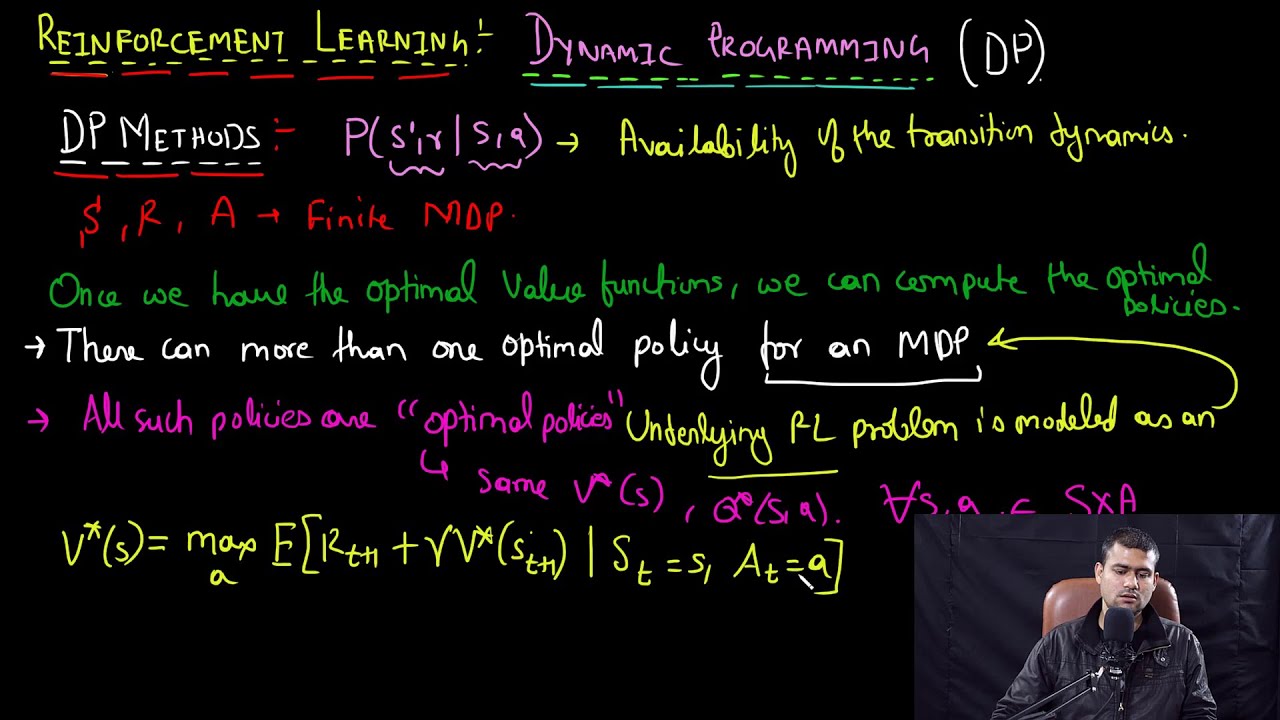 REINFORCEMENT LEARNING:- DYNAMIC PROGRAMMING (DP).
DP METHODS:- P(s',r|s,a) → Availability of the transition dynamics.
S, R, A → Finite MDP.
Once we have the optimal value functions, we can compute the optimal policies.
→ There can more than one optimal policy for an MDP
→ All such policies are "optimal policies" Underlying RL problem is modeled as an
↳ same V*(s), Q*(s,a). ∀s,a ∈ S×A
V*(s) = max_a E[R_{t+1} + γV*(S_{t+1}) | S_t = s, A_t = a]